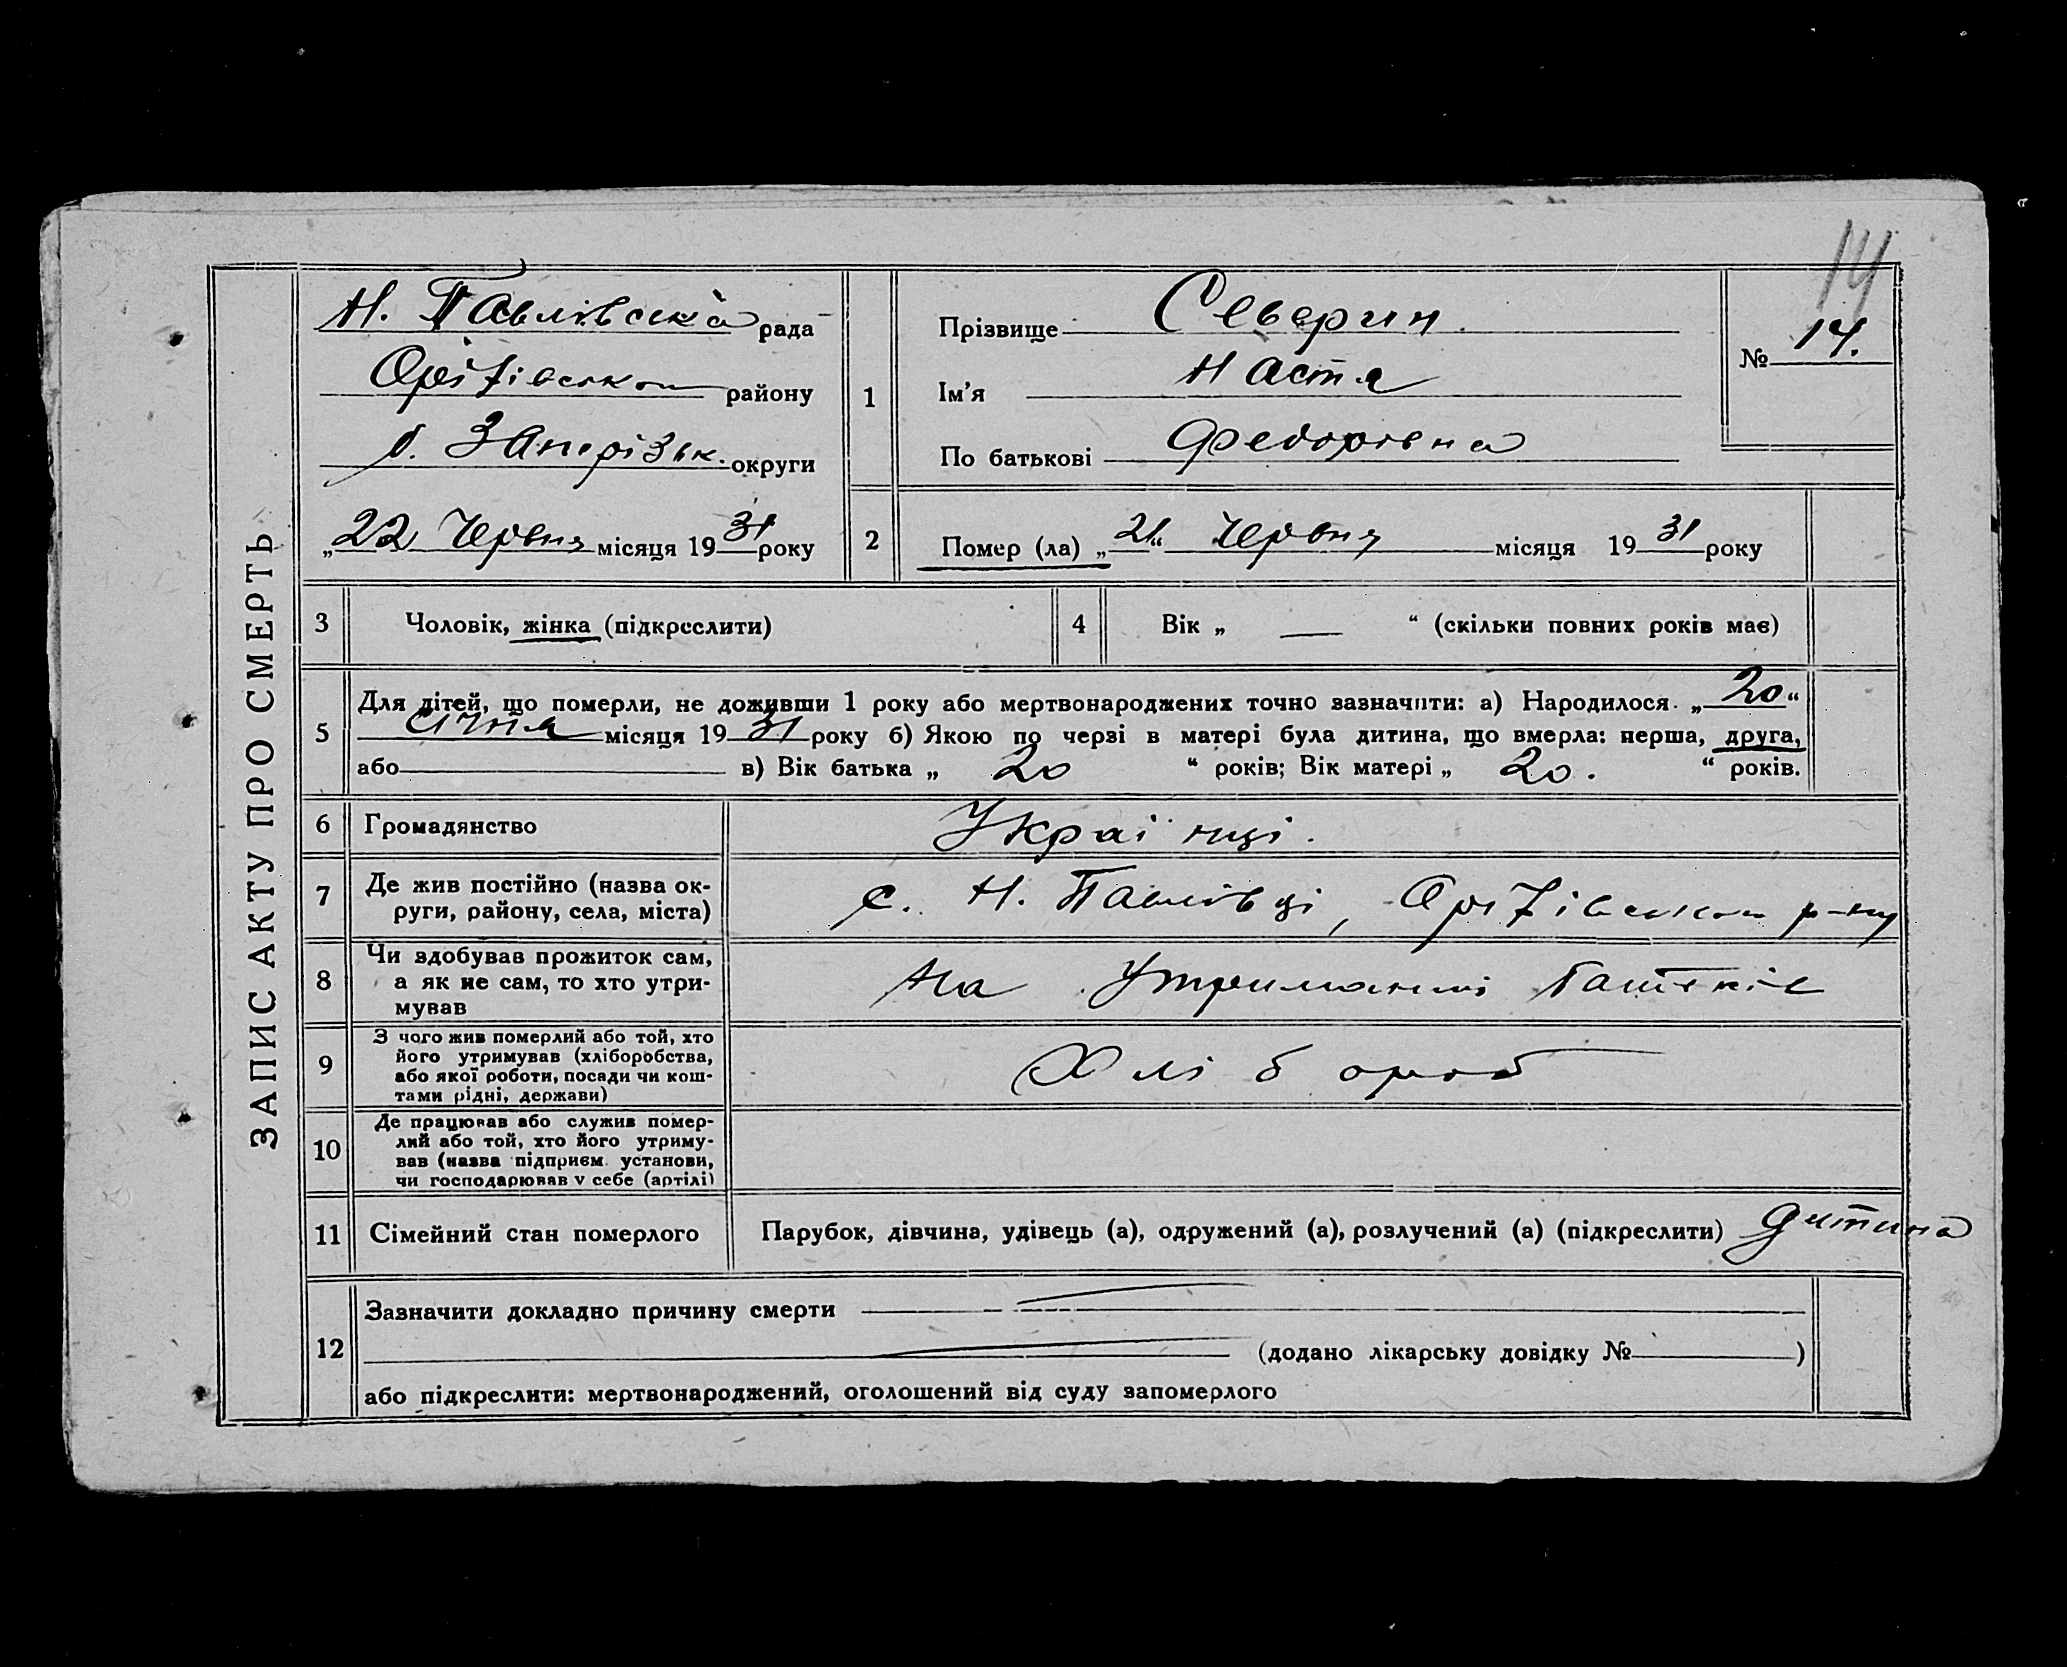 14
ЗАПИС АКТУ ПРО СМЕРТЬ
Н. Павлівська рада
Оріхівського району
б. Запорізьк. округи
„22 Червня місяця 1931 року
1
Прізвище Северин
Ім’я Настя
По батькові Федоровна
№ 14.
2
Помер (ла) „21“ Червня місяця 1931 року
3 Чоловік, жінка (підкреслити)
4 Вік „ — “ (скільки повних років має)
5
Для дітей, що померли, не доживши 1 року або мертвонароджених точно зазначити: а) Народилося „20“
Січня місяця 1931 року б) Якою по черзі в матері була дитина, що вмерла: перша, друга,
або в) Вік батька „ 20 “ років; Вік матері „ 20. “ років.
6 Громадянство Українці.
7 Де жив постійно (назва ок-
руги, району, села, міста)
с. Н. Павлівці, Оріхівського р-ну
8 Чи здобував прожиток сам,
а як не сам, то хто утри-
мував
На Утриманні батьків
9 З чого жив померлий або той, хто
його утримував (хліборобства,
або якої роботи, посади чи кош-
тами рідні, держави)
Хлібороб
10 Де працював або служив помер-
лий або той, хто його утриму-
вав (назва підприєм. установи,
чи господарював у себе (артілі)
11 Сімейний стан померлого Парубок, дівчина, удівець (а), одружений (а), розлучений (а) (підкреслити) дитина
12
Зазначити докладно причину смерти
(додано лікарську довідку № )
або підкреслити: мертвонароджений, оголошений від суду запомерлого